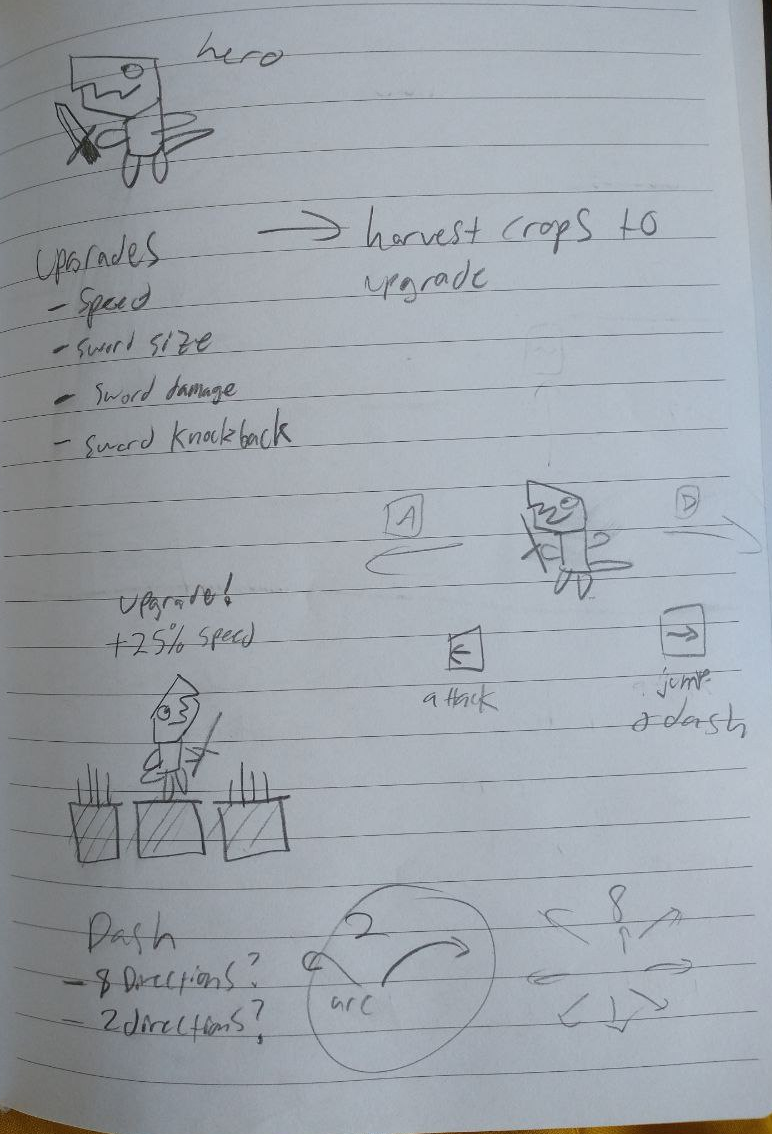 hero
Upgrades
- Speed
- sword size
- sword damage
- sword knockback
→ harvest crops to
upgrade
A
D
upgrade!
+25% speed
←
attack
→
jump
dash
Dash
- 8 Directions?
- 2 directions?
2
arc
8